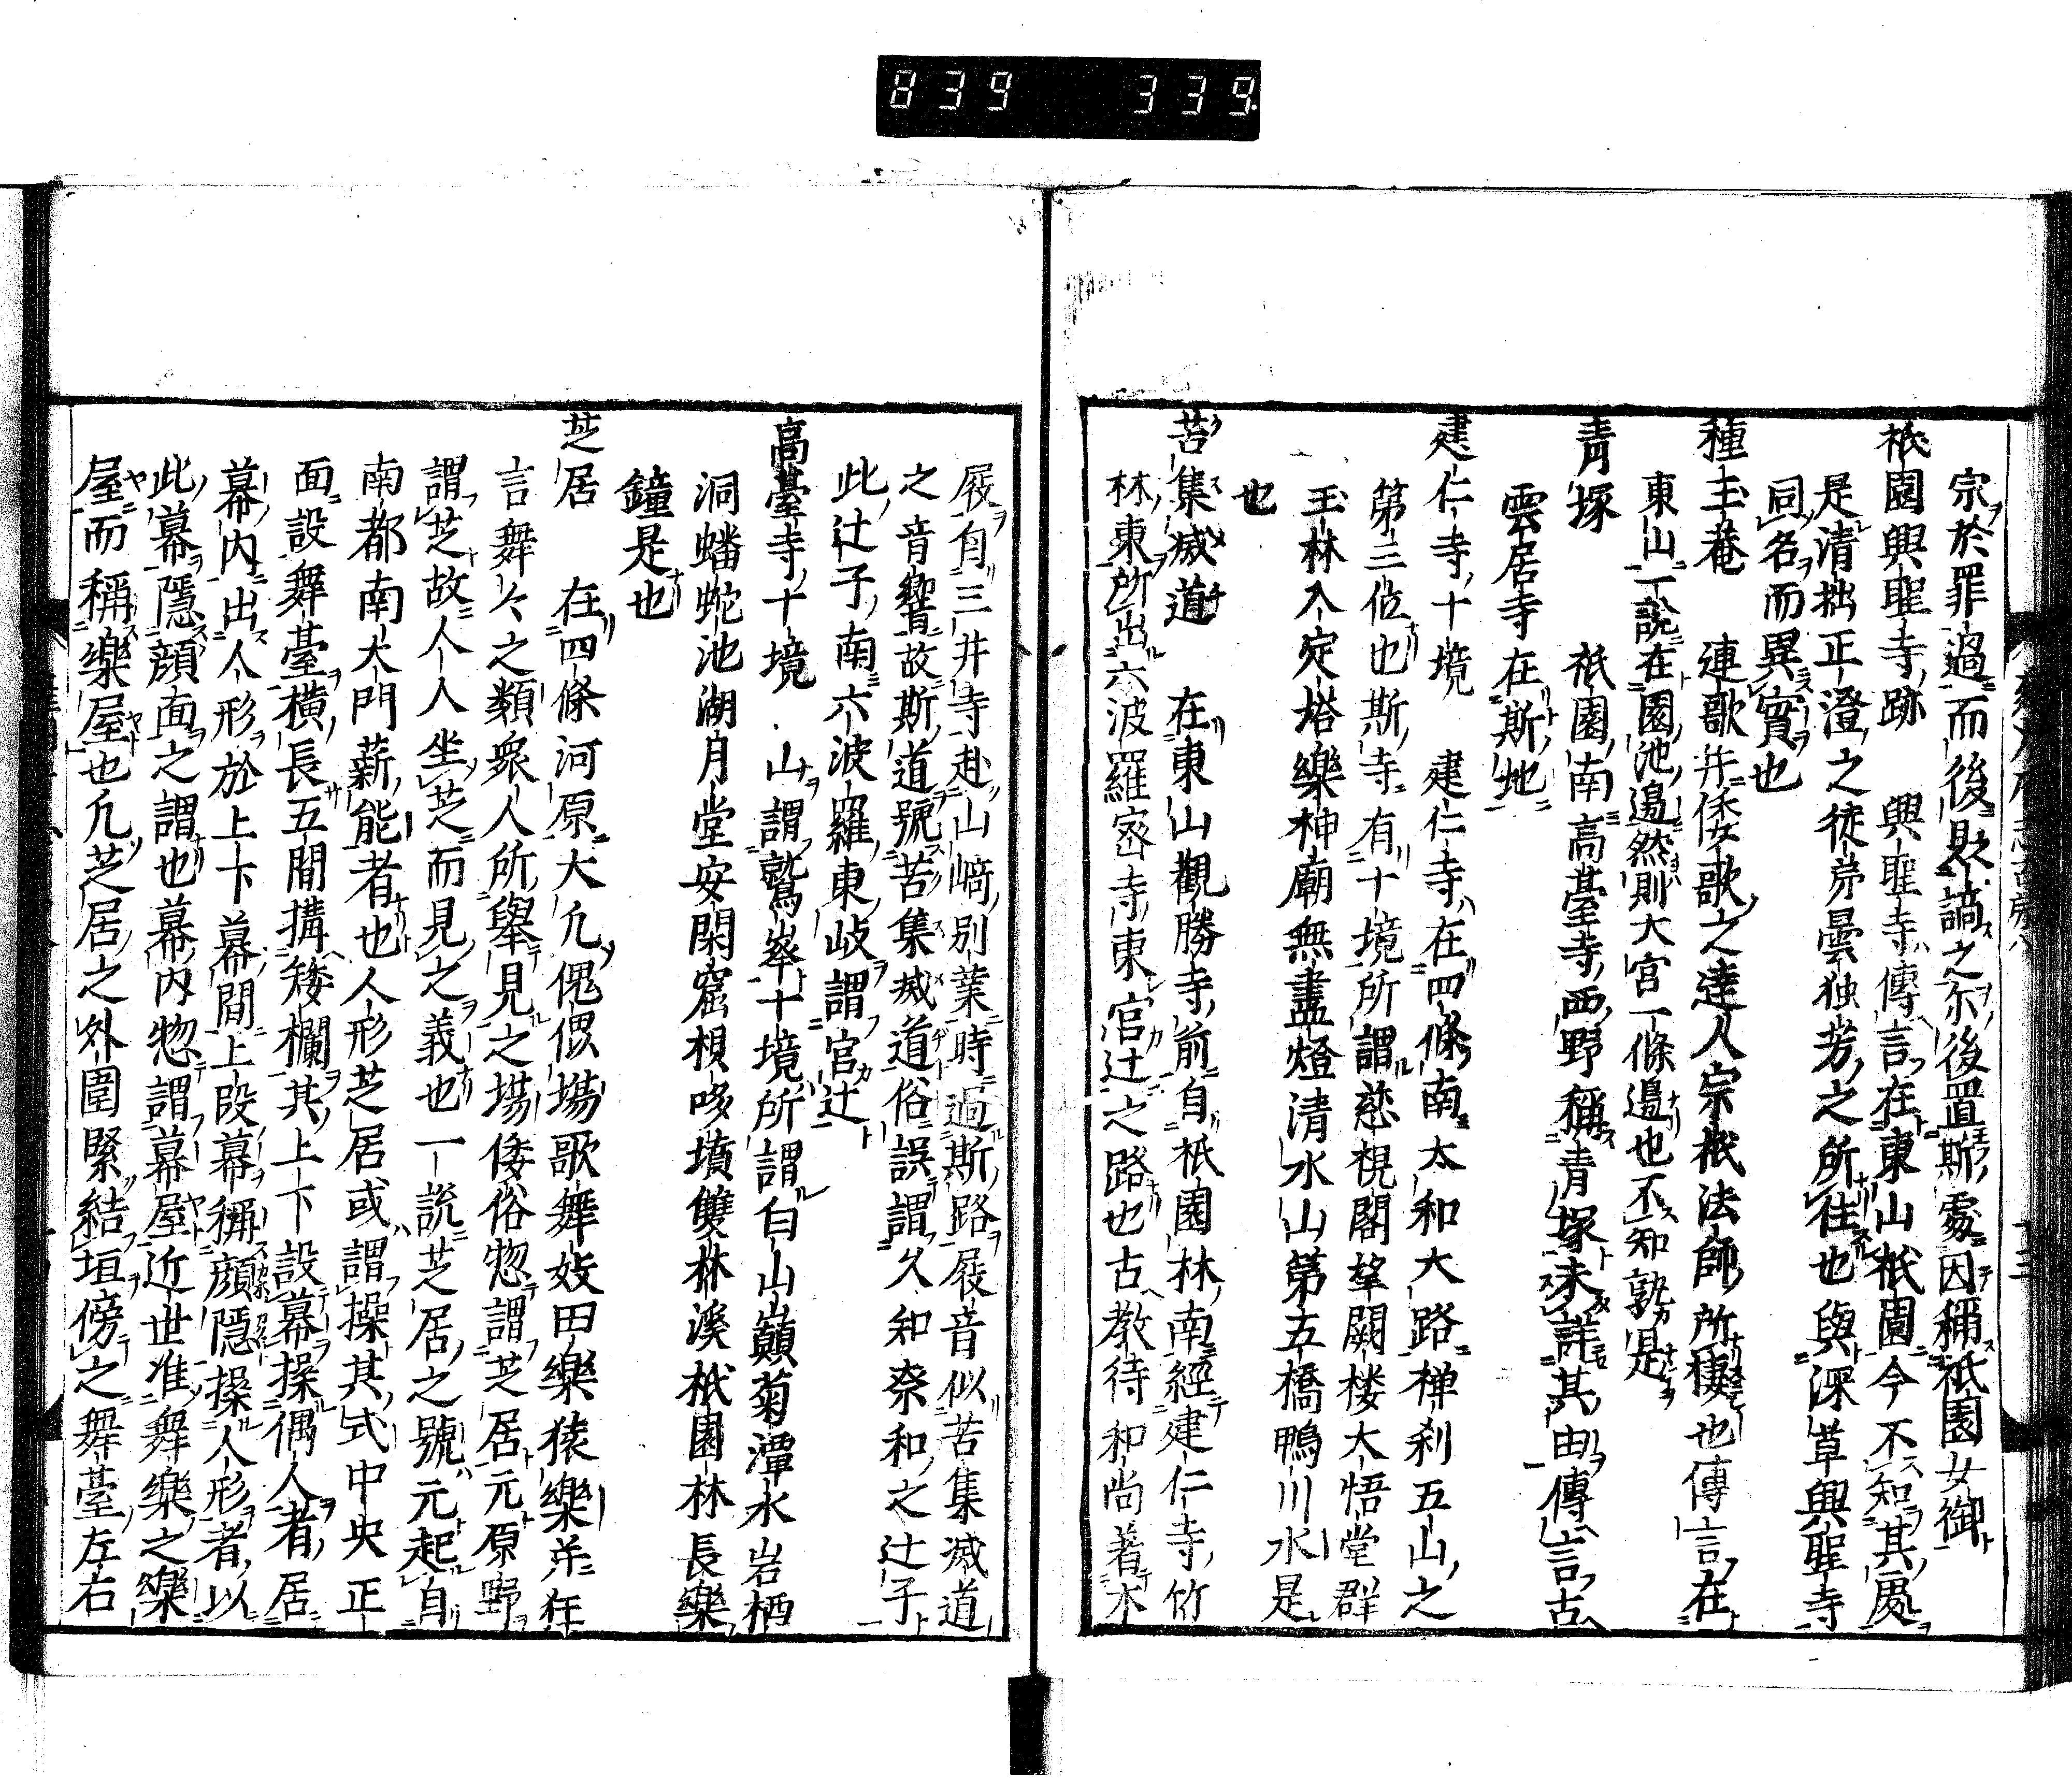 839 339
宗於罪過而後賜謫之尓後置斯處因稱祇園女御
祇園興聖寺跡 興聖寺傳言在東山祇園今不知其處
是清拙正澄之徒弟曇独芳之所住也與深草興聖寺
同名而異實也
種玉菴 連歌并倭歌之達人宗祇法師所棲也傳言在
東山一說在園池邉然則大宮一條邉也不知孰是
青塚 祇園南高臺寺西野稱青塚未詳其由傳言古
雲居寺在斯地
建仁寺十境 建仁寺在四條南大和大路禅刹五山之
第三位也斯寺有十境所謂慈視閣望闕楼大悟堂群
玉林入定塔樂神廟無盡燈清水山第五橋鴨川水是
也
苦集滅道 在東山觀勝寺前自祇園林南經建仁寺竹
林東所出六波羅密寺東宮辻之路也古教待和尚著木
屐自三井寺赴山﨑別業時過斯路屐音似苦集滅道
之音響故斯道號苦集滅道俗誤謂久和奈和之辻子
此辻子南六波羅東岐謂宮辻
高臺寺十境 山謂鷲峯十境所謂白山巔菊潭水岩栖
洞蟠蛇池湖月堂安閑窟槇哆墳雙林溪祇園林長樂
鐘是也
芝居 在四條河原大凢傀偎場歌舞妓田樂猿樂并狂
言舞々之類衆人所舉見之場倭俗惣謂芝居元原野
謂芝故人人坐芝而見之義也一說芝居之號元起自
南都南大門薪能者也人形芝居或謂操其式中央正
面設舞臺横長五間搆矮欄其上下設幕操偶人者居
幕内出人形於上下幕間上段幕稱顔隱操人形者以
此幕隱顔面之謂也幕内惣謂幕屋近世准舞樂之樂
屋而稱樂屋也凢芝居之外圍緊結垣傍之舞臺左右